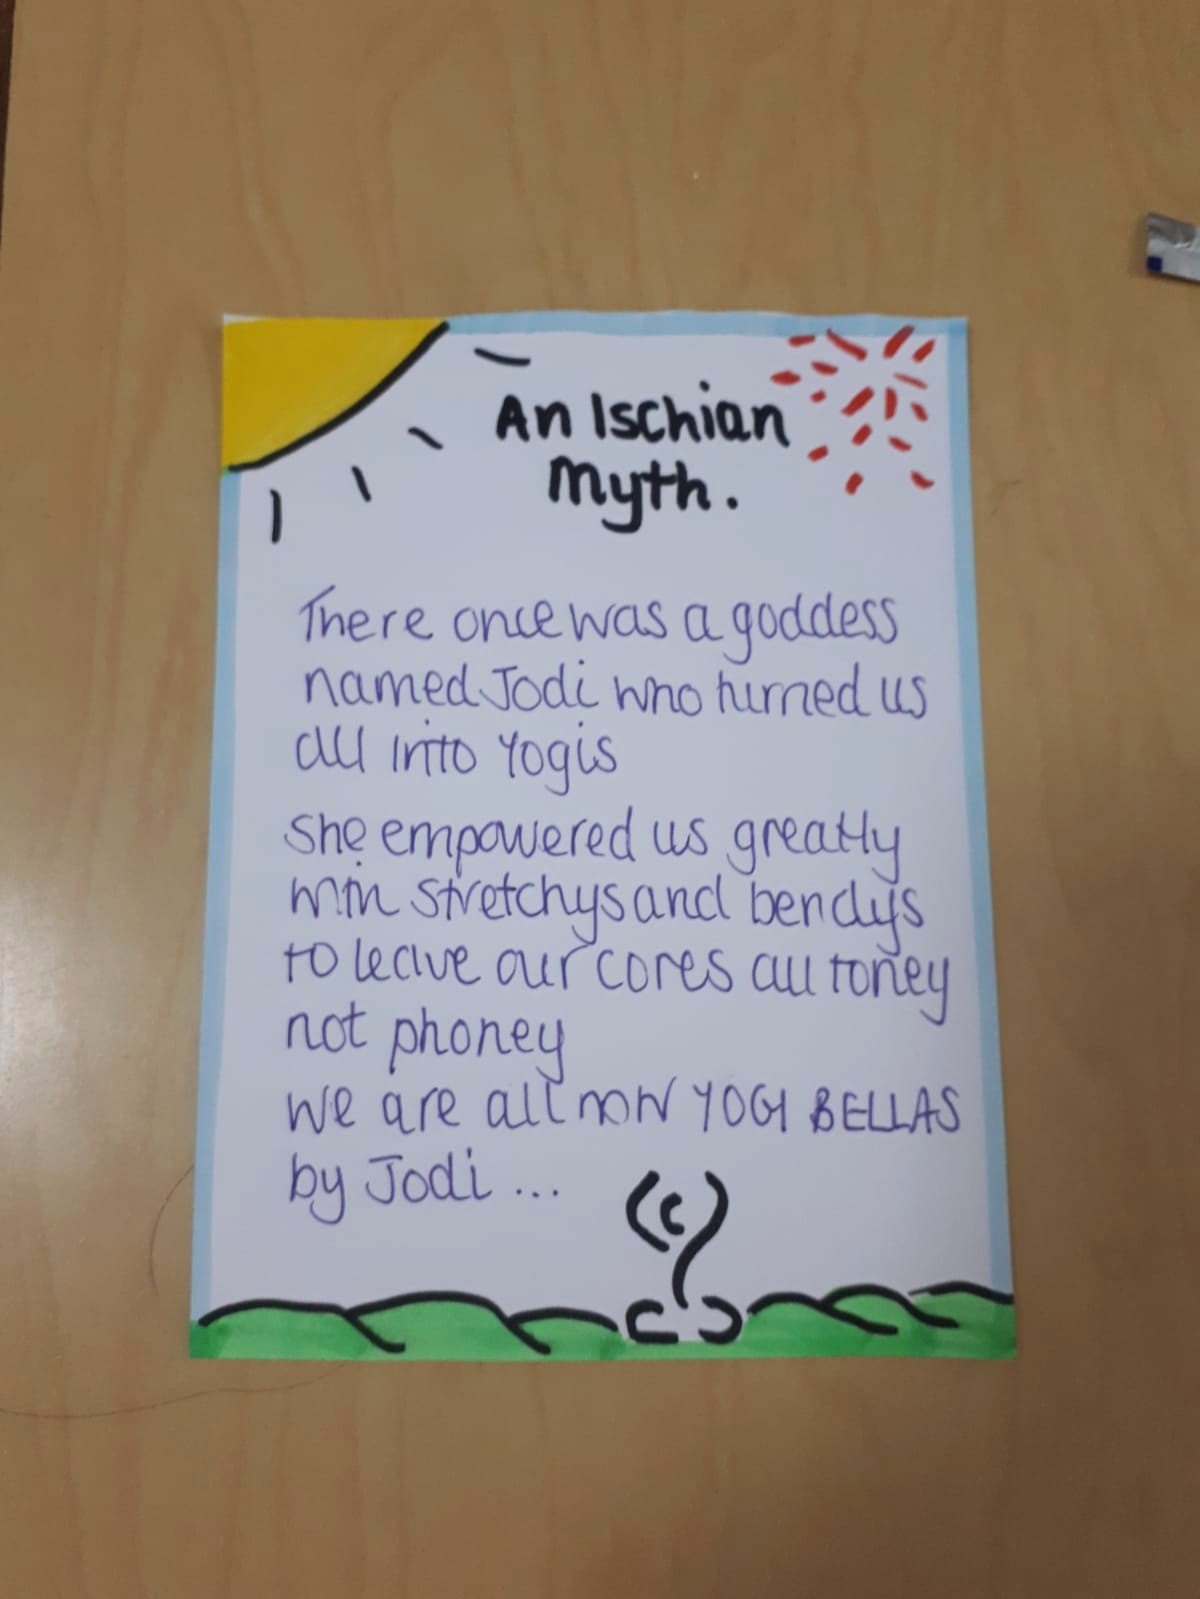 An Ischian
Myth.
There once was a goddess
named Jodi who turned us
all into Yogis
She empowered us greatly
with stretchys and bendys
to leave our cores all toney
not phoney
We are all now YOGI BELLAS
by Jodi ...